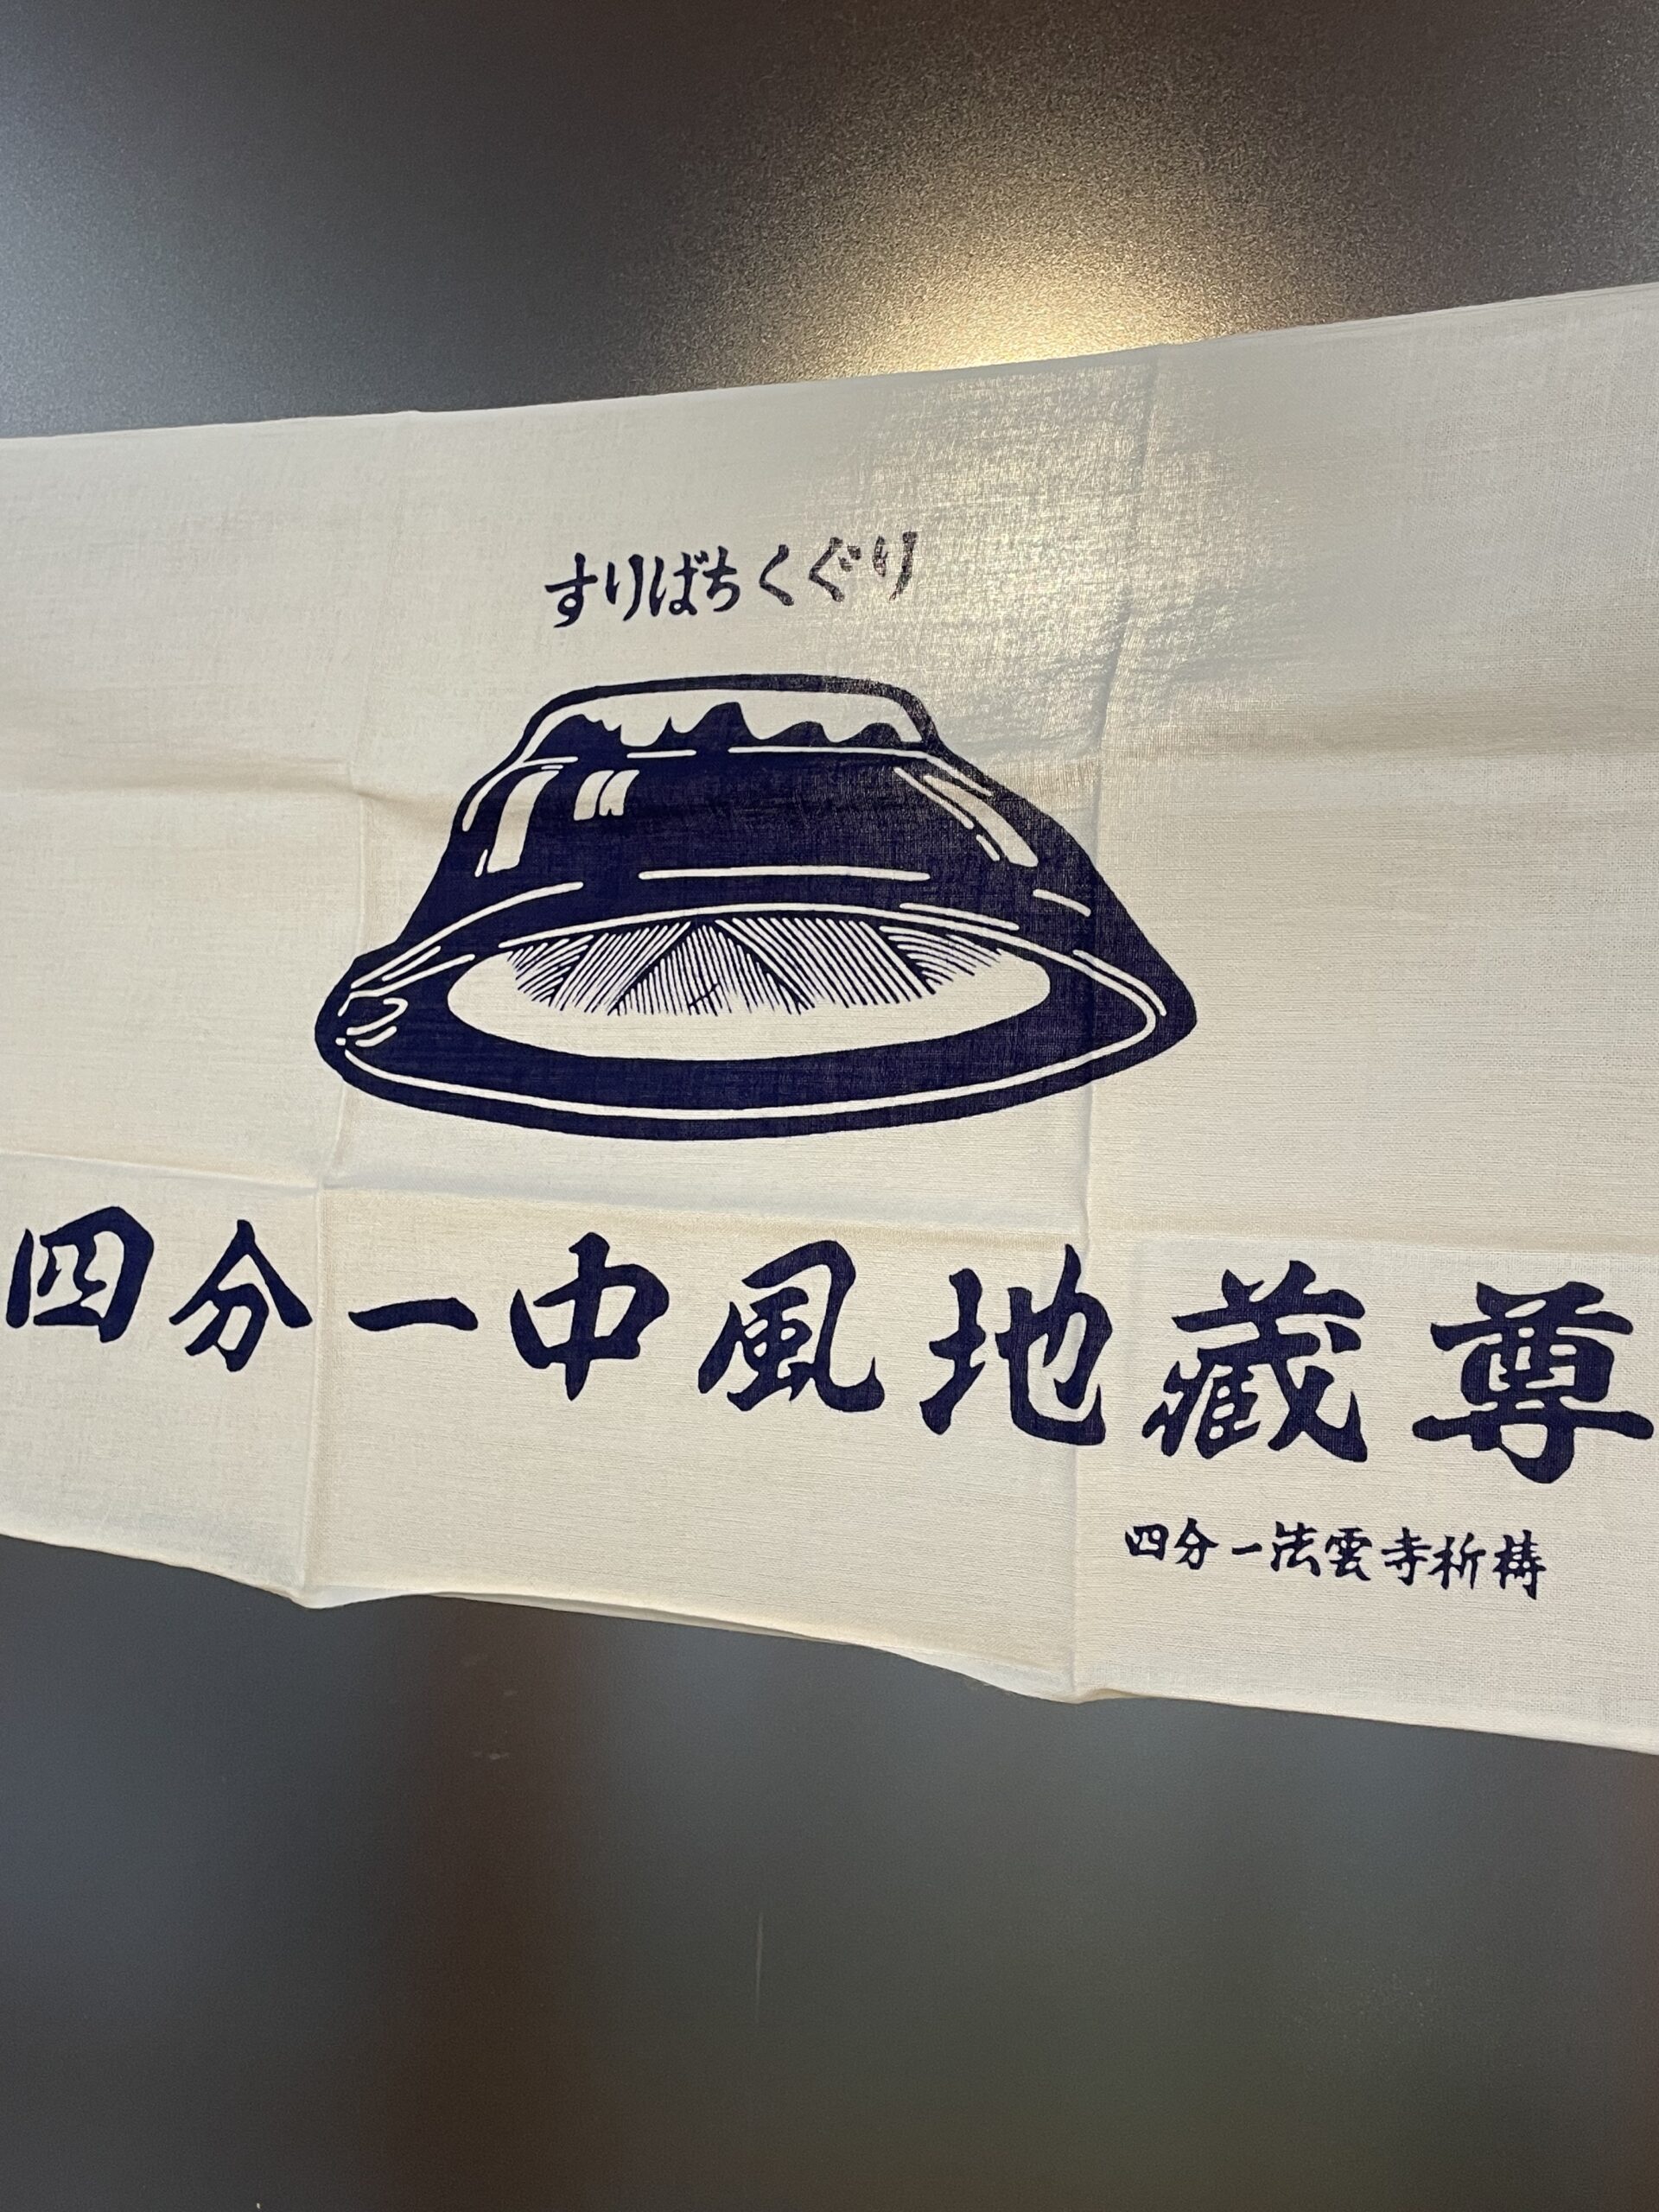 すりばちくぐり
四分一中風地蔵尊
四分一法雲寺祈祷